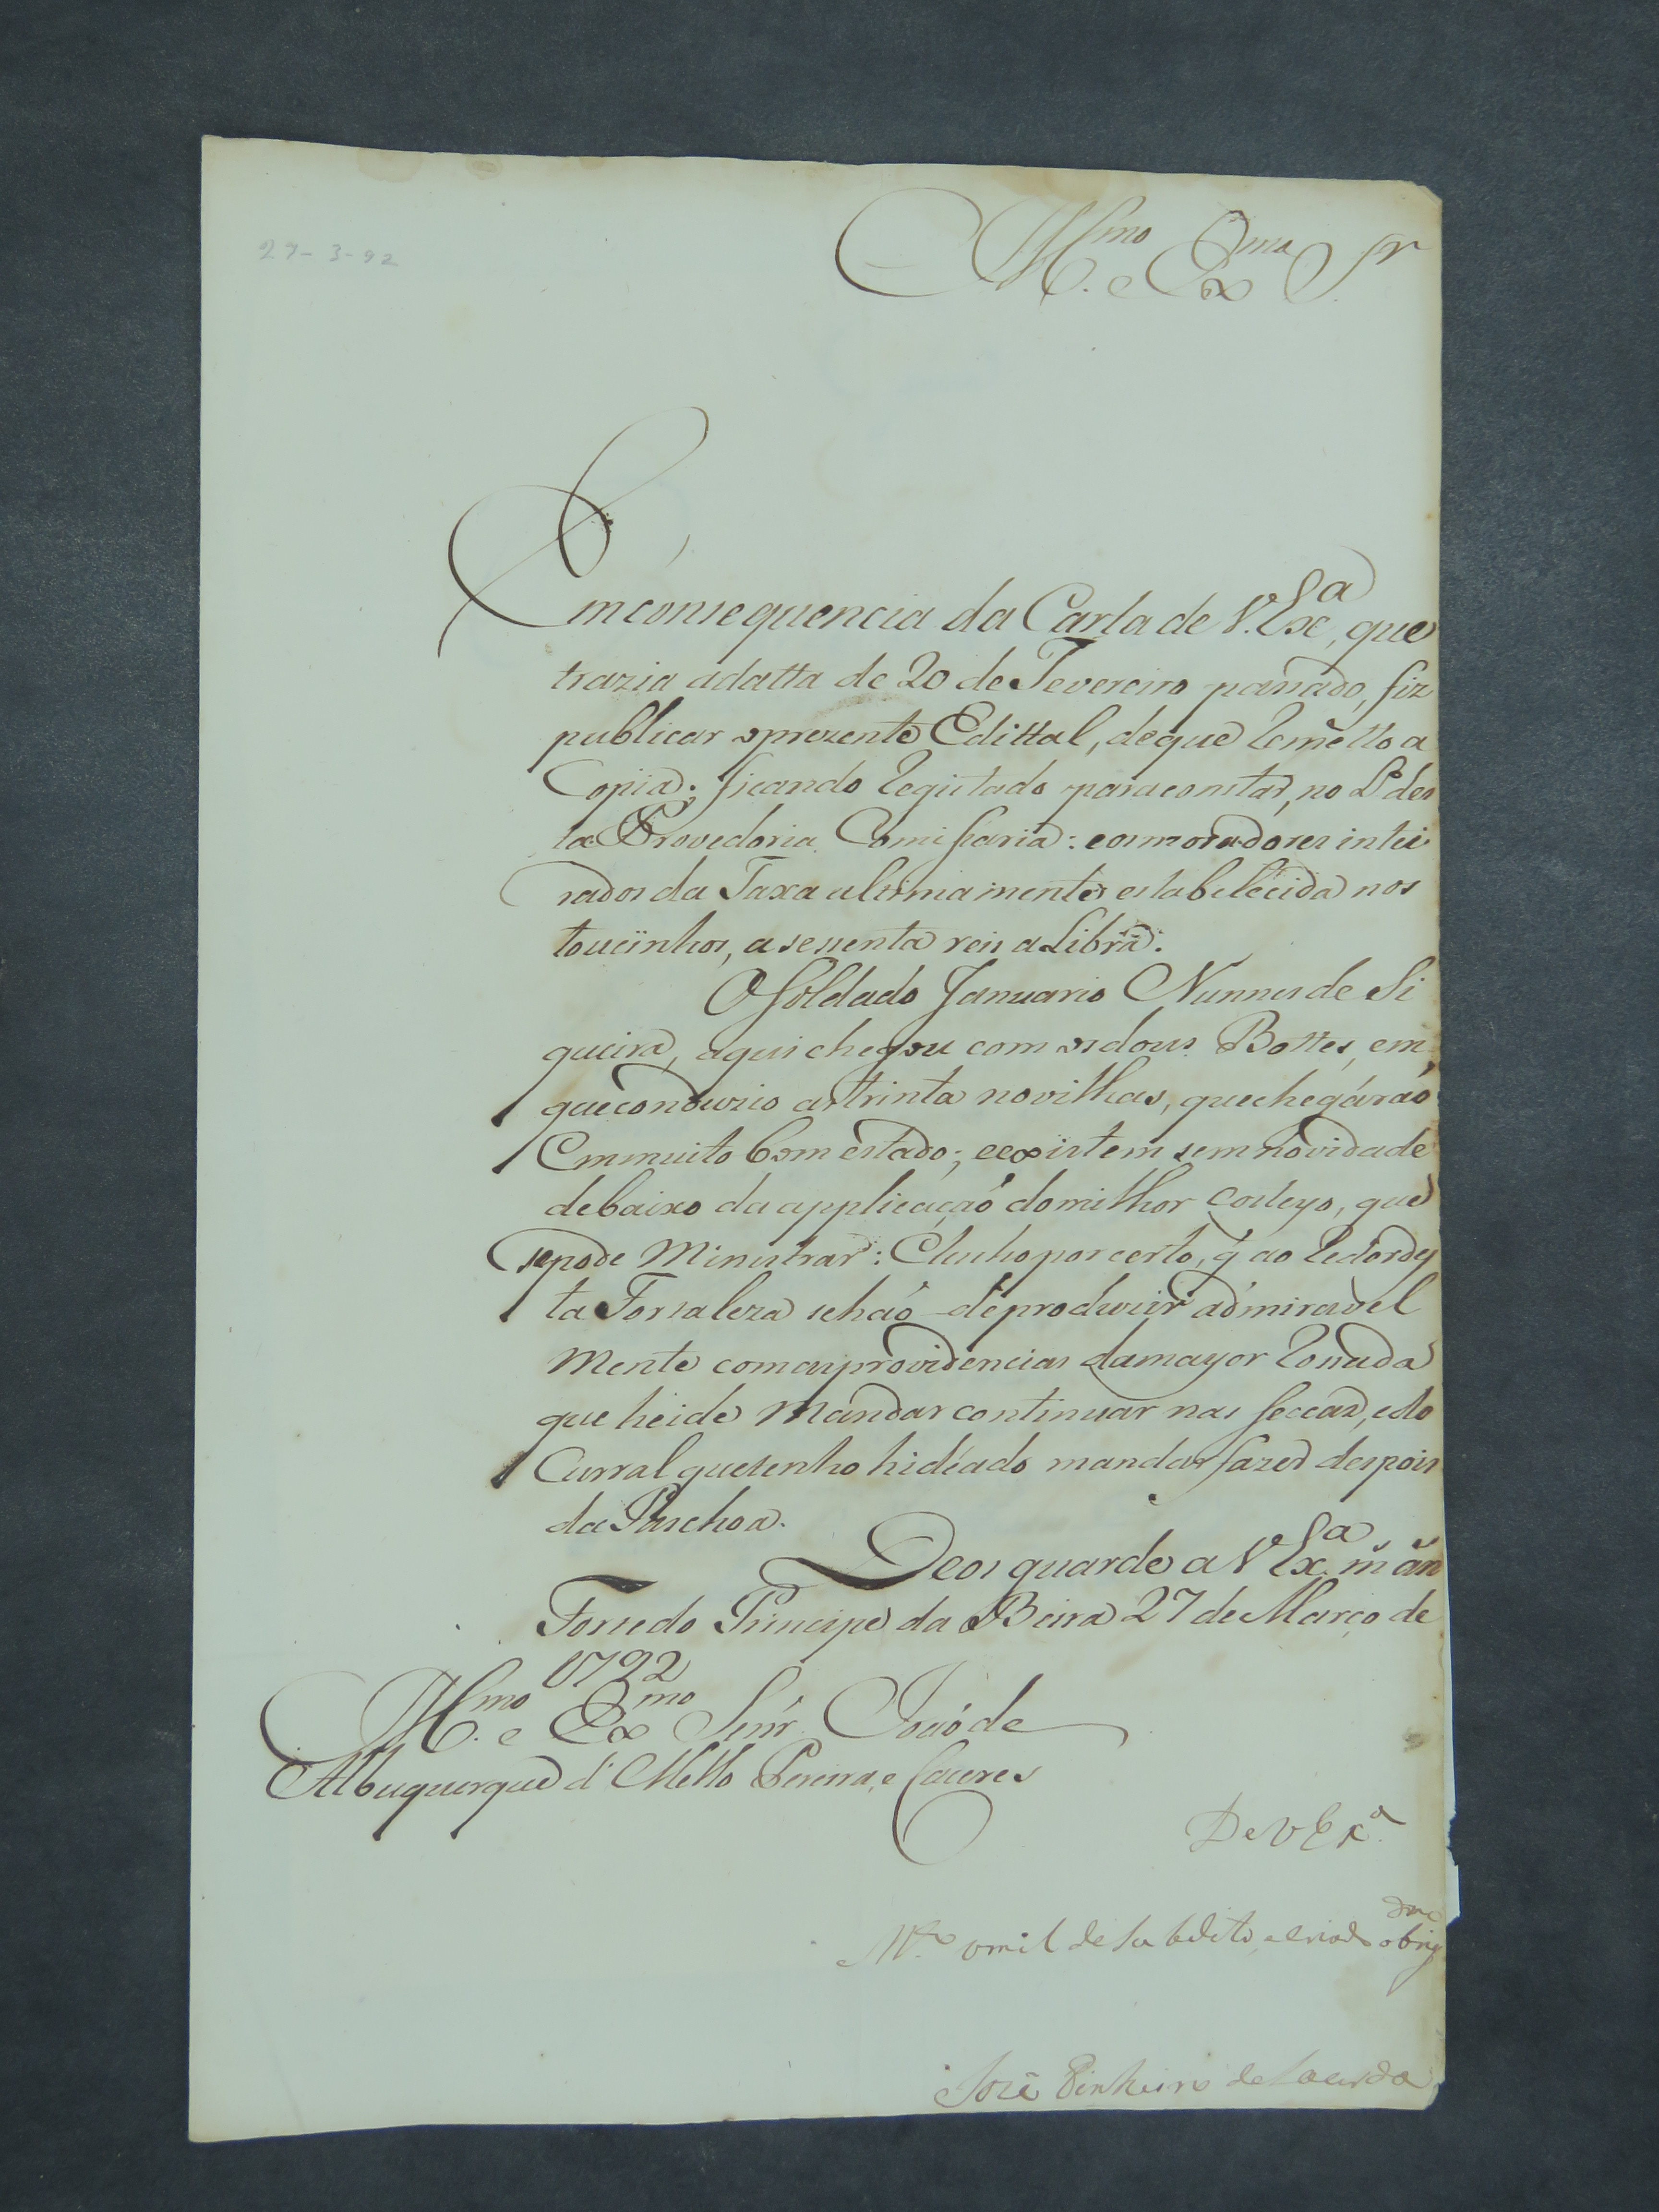 27-3-92
Ill.mo e Ex.mo Sr.
Em consequencia da Carta de V. Exa, que
trazia adatta de 20 de Fevereiro passado, fiz
publicar oprezente Edittal, deque Remetto a
Copia; ficando Registado paraconstar, no L.o des
ta Provedoria Comissaria: eosmoradores intei
rados da Taxa ultimamente estabelécida nos
toucinhos, a sessenta reis a Libra.
O soldado Januario Nunnes de Si
queira, aqui chegou com os dous Bottes, em
queconduzio as trinta novilhas, quechegáraó
Emmuito bom estado; eexistem sem novidade
debaixo da applicaçaó domilhor Costeyo, que
sepode Ministrar: Etenho por certo, q̃ ao Redor des
ta Fortaleza sehaó deproduzir admiravel
Mente comasprovidencias damayor Ronda
que heide Mandar continuar nas seccas, edo
Curral quetenho hidéado mandar fazer despois
da Paschoa.
Deos guarde a V Exa m̃ ãn
Forte do Principe da Beira 27 de Março de
1792
Ill.mo e Ex.mo Senr. Joaó de
Albuquerque d' Mello Pereira, e Caceres
De V Exa.
M.to omil de subdito, e criado obrigdmo
Jozé Pinheiro de Lacerda